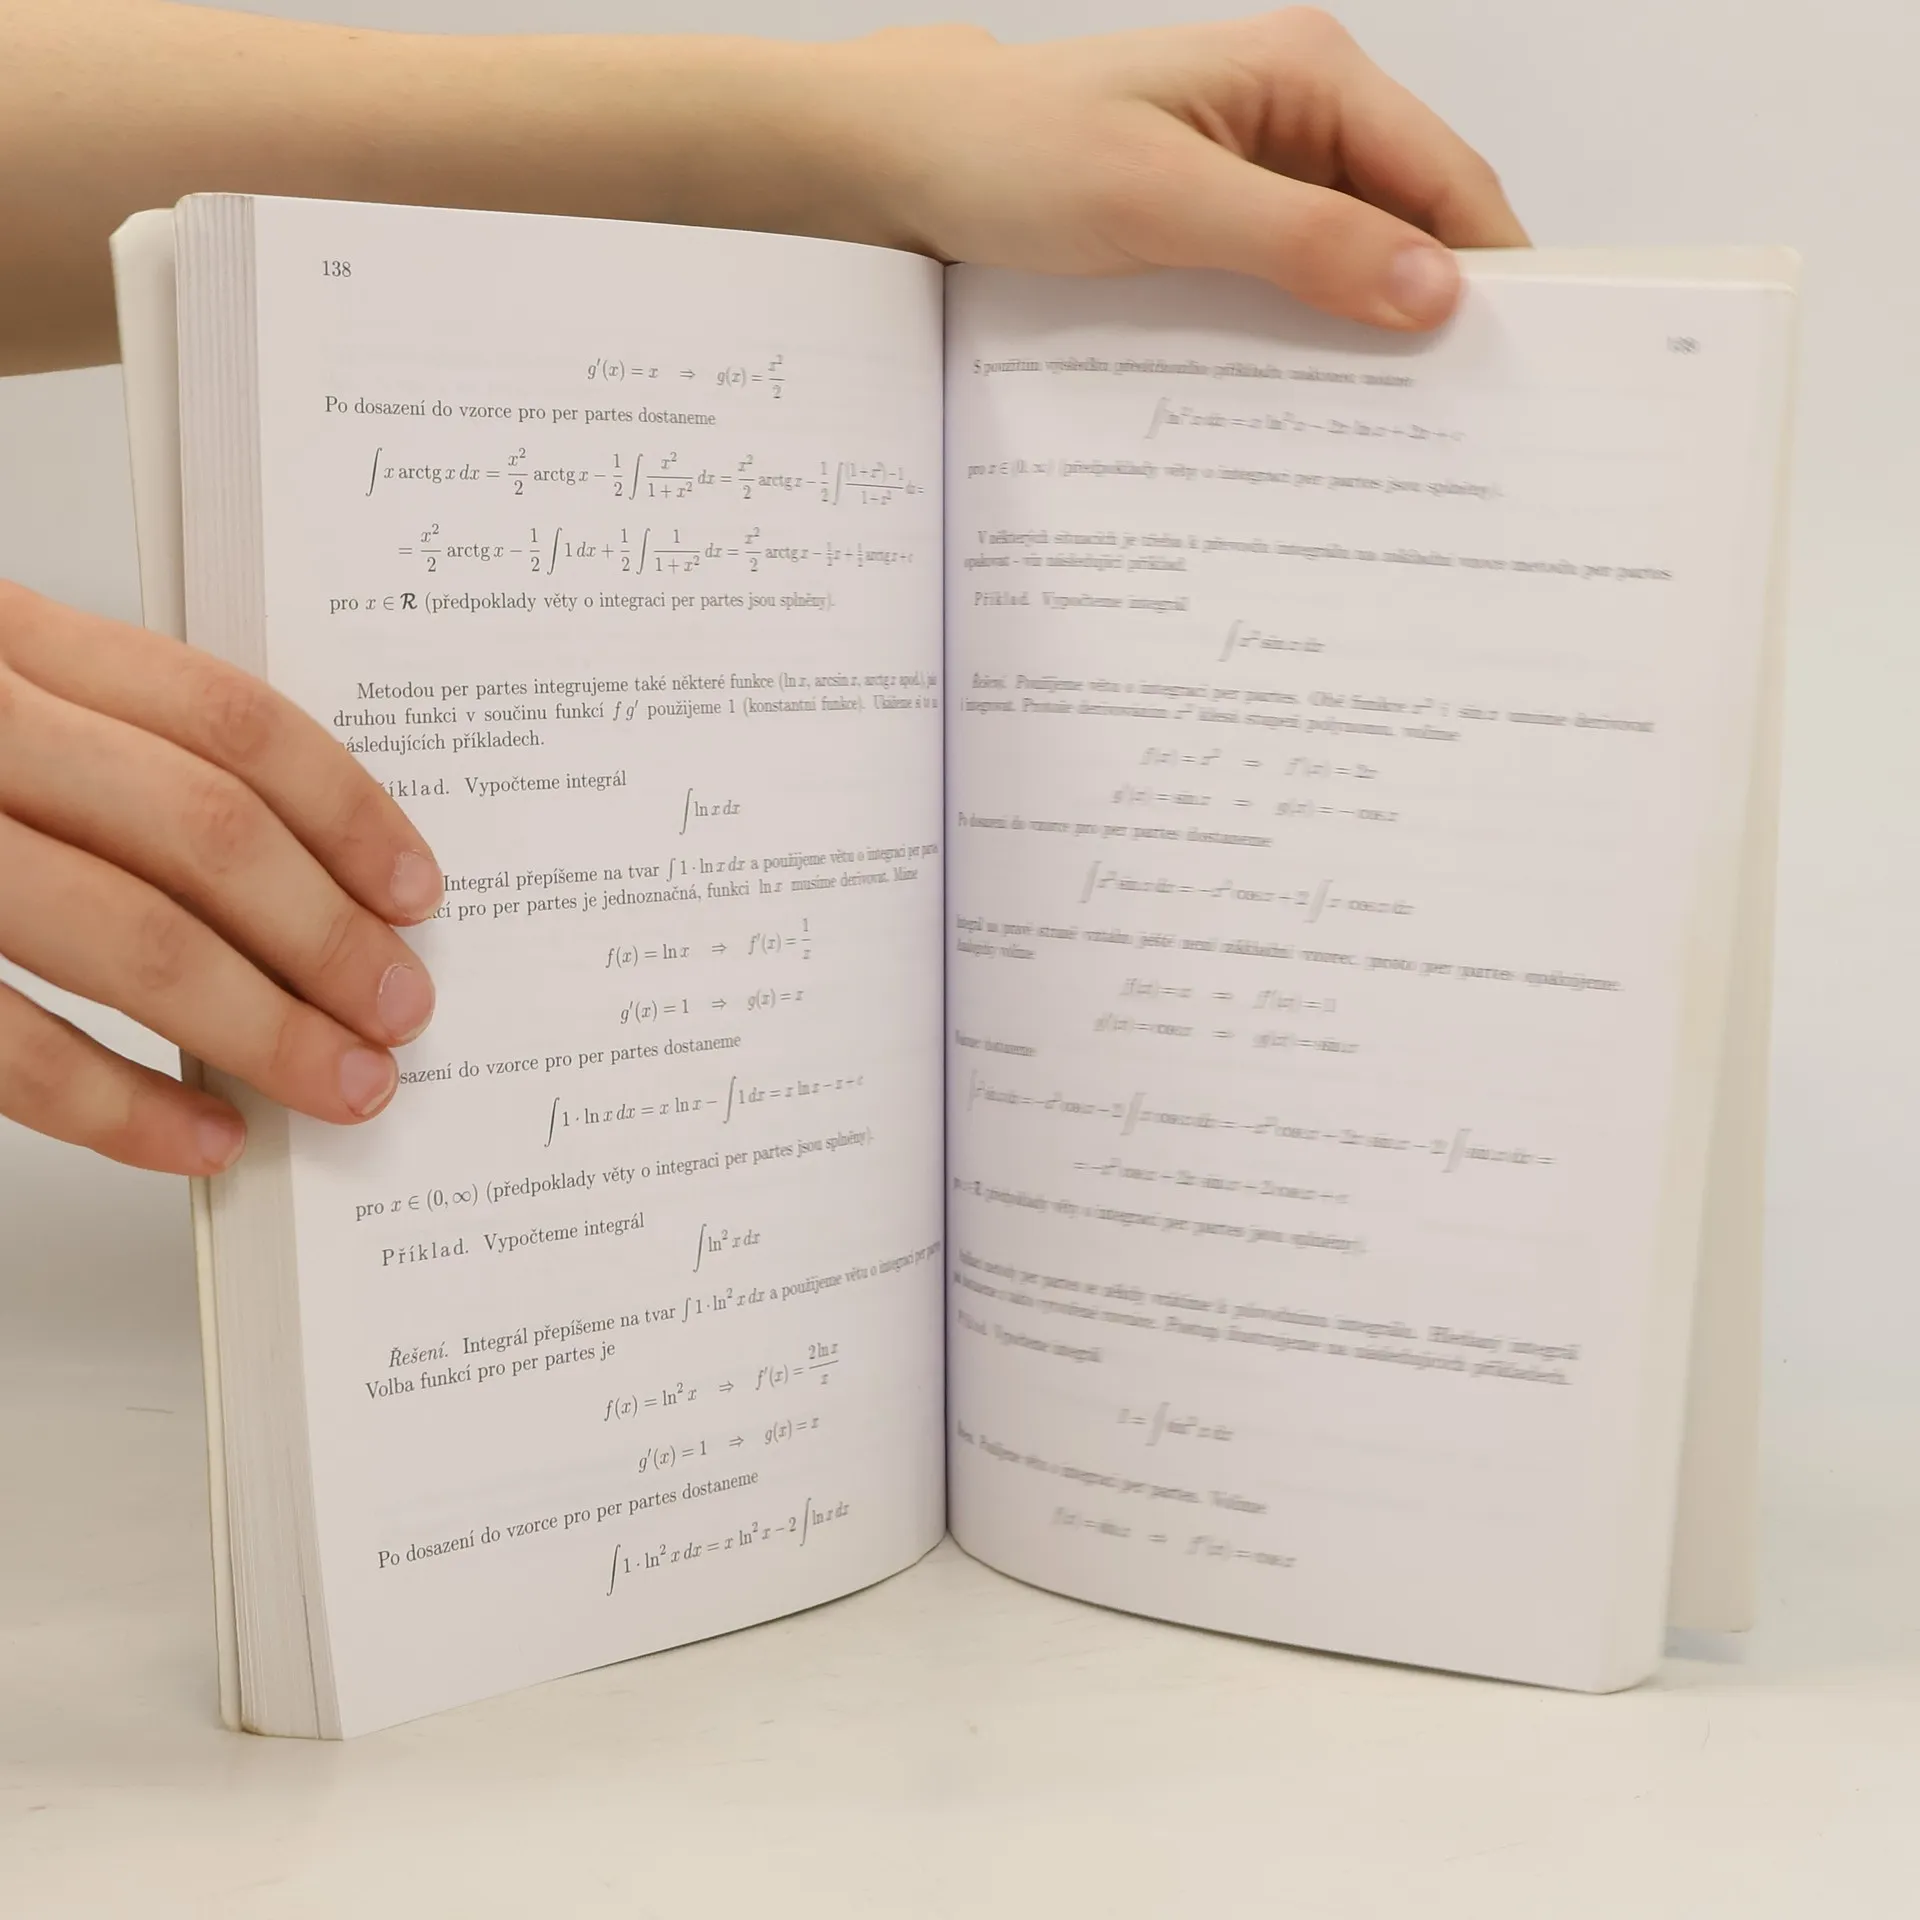 138
g′(x) = x ⇒ g(x) = x²/2
Po dosazení do vzorce pro per partes dostaneme
∫ x arctg x dx = x²/2 arctg x − 1/2 ∫ x²/(1 + x²) dx = x²/2 arctg x − 1/2 ∫
= x²/2 arctg x − 1/2 ∫ 1 dx + 1/2 ∫ 1/(1 + x²) dx = x²/2 arctg x − 1/2 x + 1/2 arctg x + c
pro x ∈ R (předpoklady věty o integraci per partes jsou splněny).
Metodou per partes integrujeme také některé funkce (ln x, arcsin x, arctg x apod.),
druhou funkci v součinu funkcí f g′ použijeme 1 (konstantní funkce). Ukážeme si to
ásledujících příkladech.
íklad. Vypočteme integrál
∫ ln x dx
Integrál přepíšeme na tvar ∫ 1 · ln x dx a použijeme větu o integraci per partes
cí pro per partes je jednoznačná, funkci ln x musíme derivovat. Máme
f(x) = ln x ⇒ f′(x) = 1/x
g′(x) = 1 ⇒ g(x) = x
sazení do vzorce pro per partes dostaneme
∫ 1 · ln x dx = x ln x − ∫ 1 dx = x ln x − x + c
pro x ∈ (0, ∞) (předpoklady věty o integraci per partes jsou splněny).
Příklad. Vypočteme integrál
∫ ln² x dx
Řešení. Integrál přepíšeme na tvar ∫ 1 · ln² x dx a použijeme větu o integraci per partes
Volba funkcí pro per partes je
f(x) = ln² x ⇒ f′(x) = 2 ln x/x
g′(x) = 1 ⇒ g(x) = x
Po dosazení do vzorce pro per partes dostaneme
∫ 1 · ln² x dx = x ln² x − 2 ∫ ln x dx
S použitím výsledku předchozího příkladu
∫ ln² x dx = x ln² x − 2x ln x + 2x + c
pro x ∈ (0, ∞) (předpoklady věty o integraci per partes jsou splněny).
V některých situacích je třeba k převodu integrálu na základní vzorce metodu per partes
opakovat - viz následující příklad.
Příklad. Vypočteme integrál
∫ x² sin x dx
Řešení. Použijeme větu o integraci per partes. Obě funkce x² i sin x umíme derivovat
i integrovat. Protože derivováním x² klesá stupeň polynomu, volíme
f(x) = x² ⇒ f′(x) = 2x
g′(x) = sin x ⇒ g(x) = − cos x
Po dosazení do vzorce pro per partes dostaneme
∫ x² sin x dx = −x² cos x + 2 ∫ x cos x dx
na pravé straně vztahu ještě není základní vzorec, proto per partes opakujeme.
volíme
f(x) = x ⇒ f′(x) = 1
g′(x) = cos x ⇒ g(x) = sin x
dostaneme
∫ x² sin x dx = −x² cos x + 2 ∫ x cos x dx = −x² cos x + 2x sin x − 2 ∫ sin x dx =
= −x² cos x + 2x sin x + 2 cos x + c
předpoklady věty o integraci per partes jsou splněny).
metody per partes se někdy vrátíme k původnímu integrálu. Hledaný integrál
z takto vytvořené rovnice. Postup ilustrujeme na následujících příkladech.
Vypočteme integrál
I = ∫ sin² x dx
Použijeme větu o integraci per partes. Volíme
f(x) = sin x ⇒ f′(x) = cos x